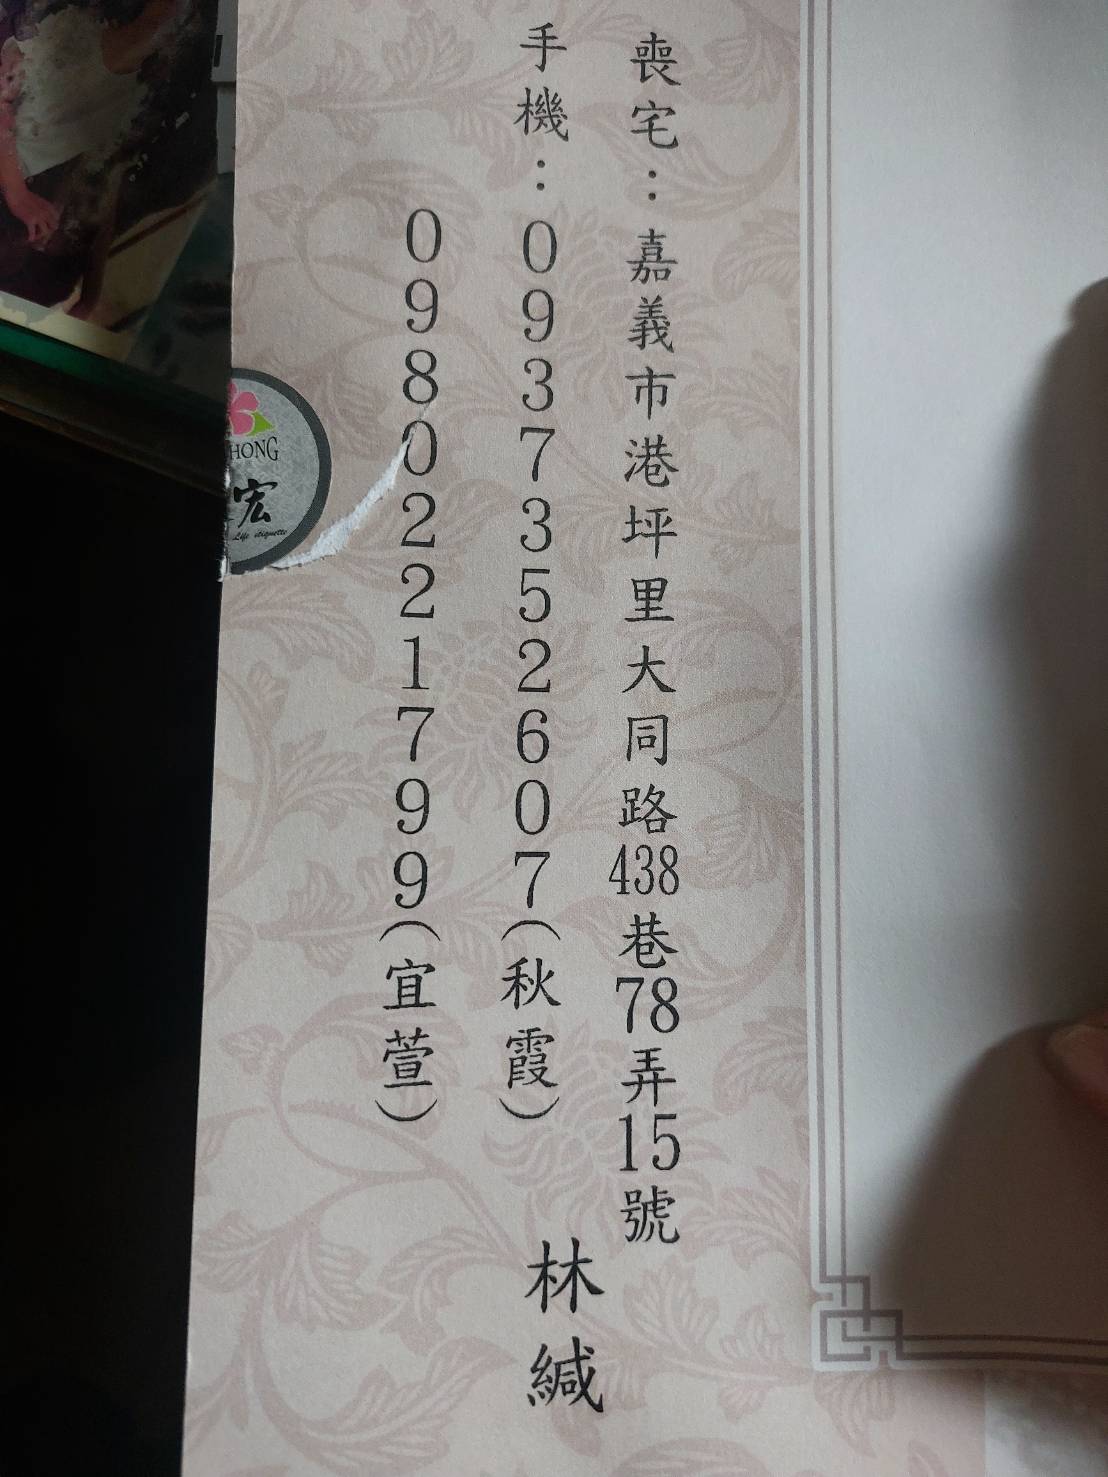 喪宅：嘉義市港坪里大同路438巷78弄15號
手機：0937352607（秋霞）
0980221799（宜萱）
林緘
HONG
宏
Life etiquette